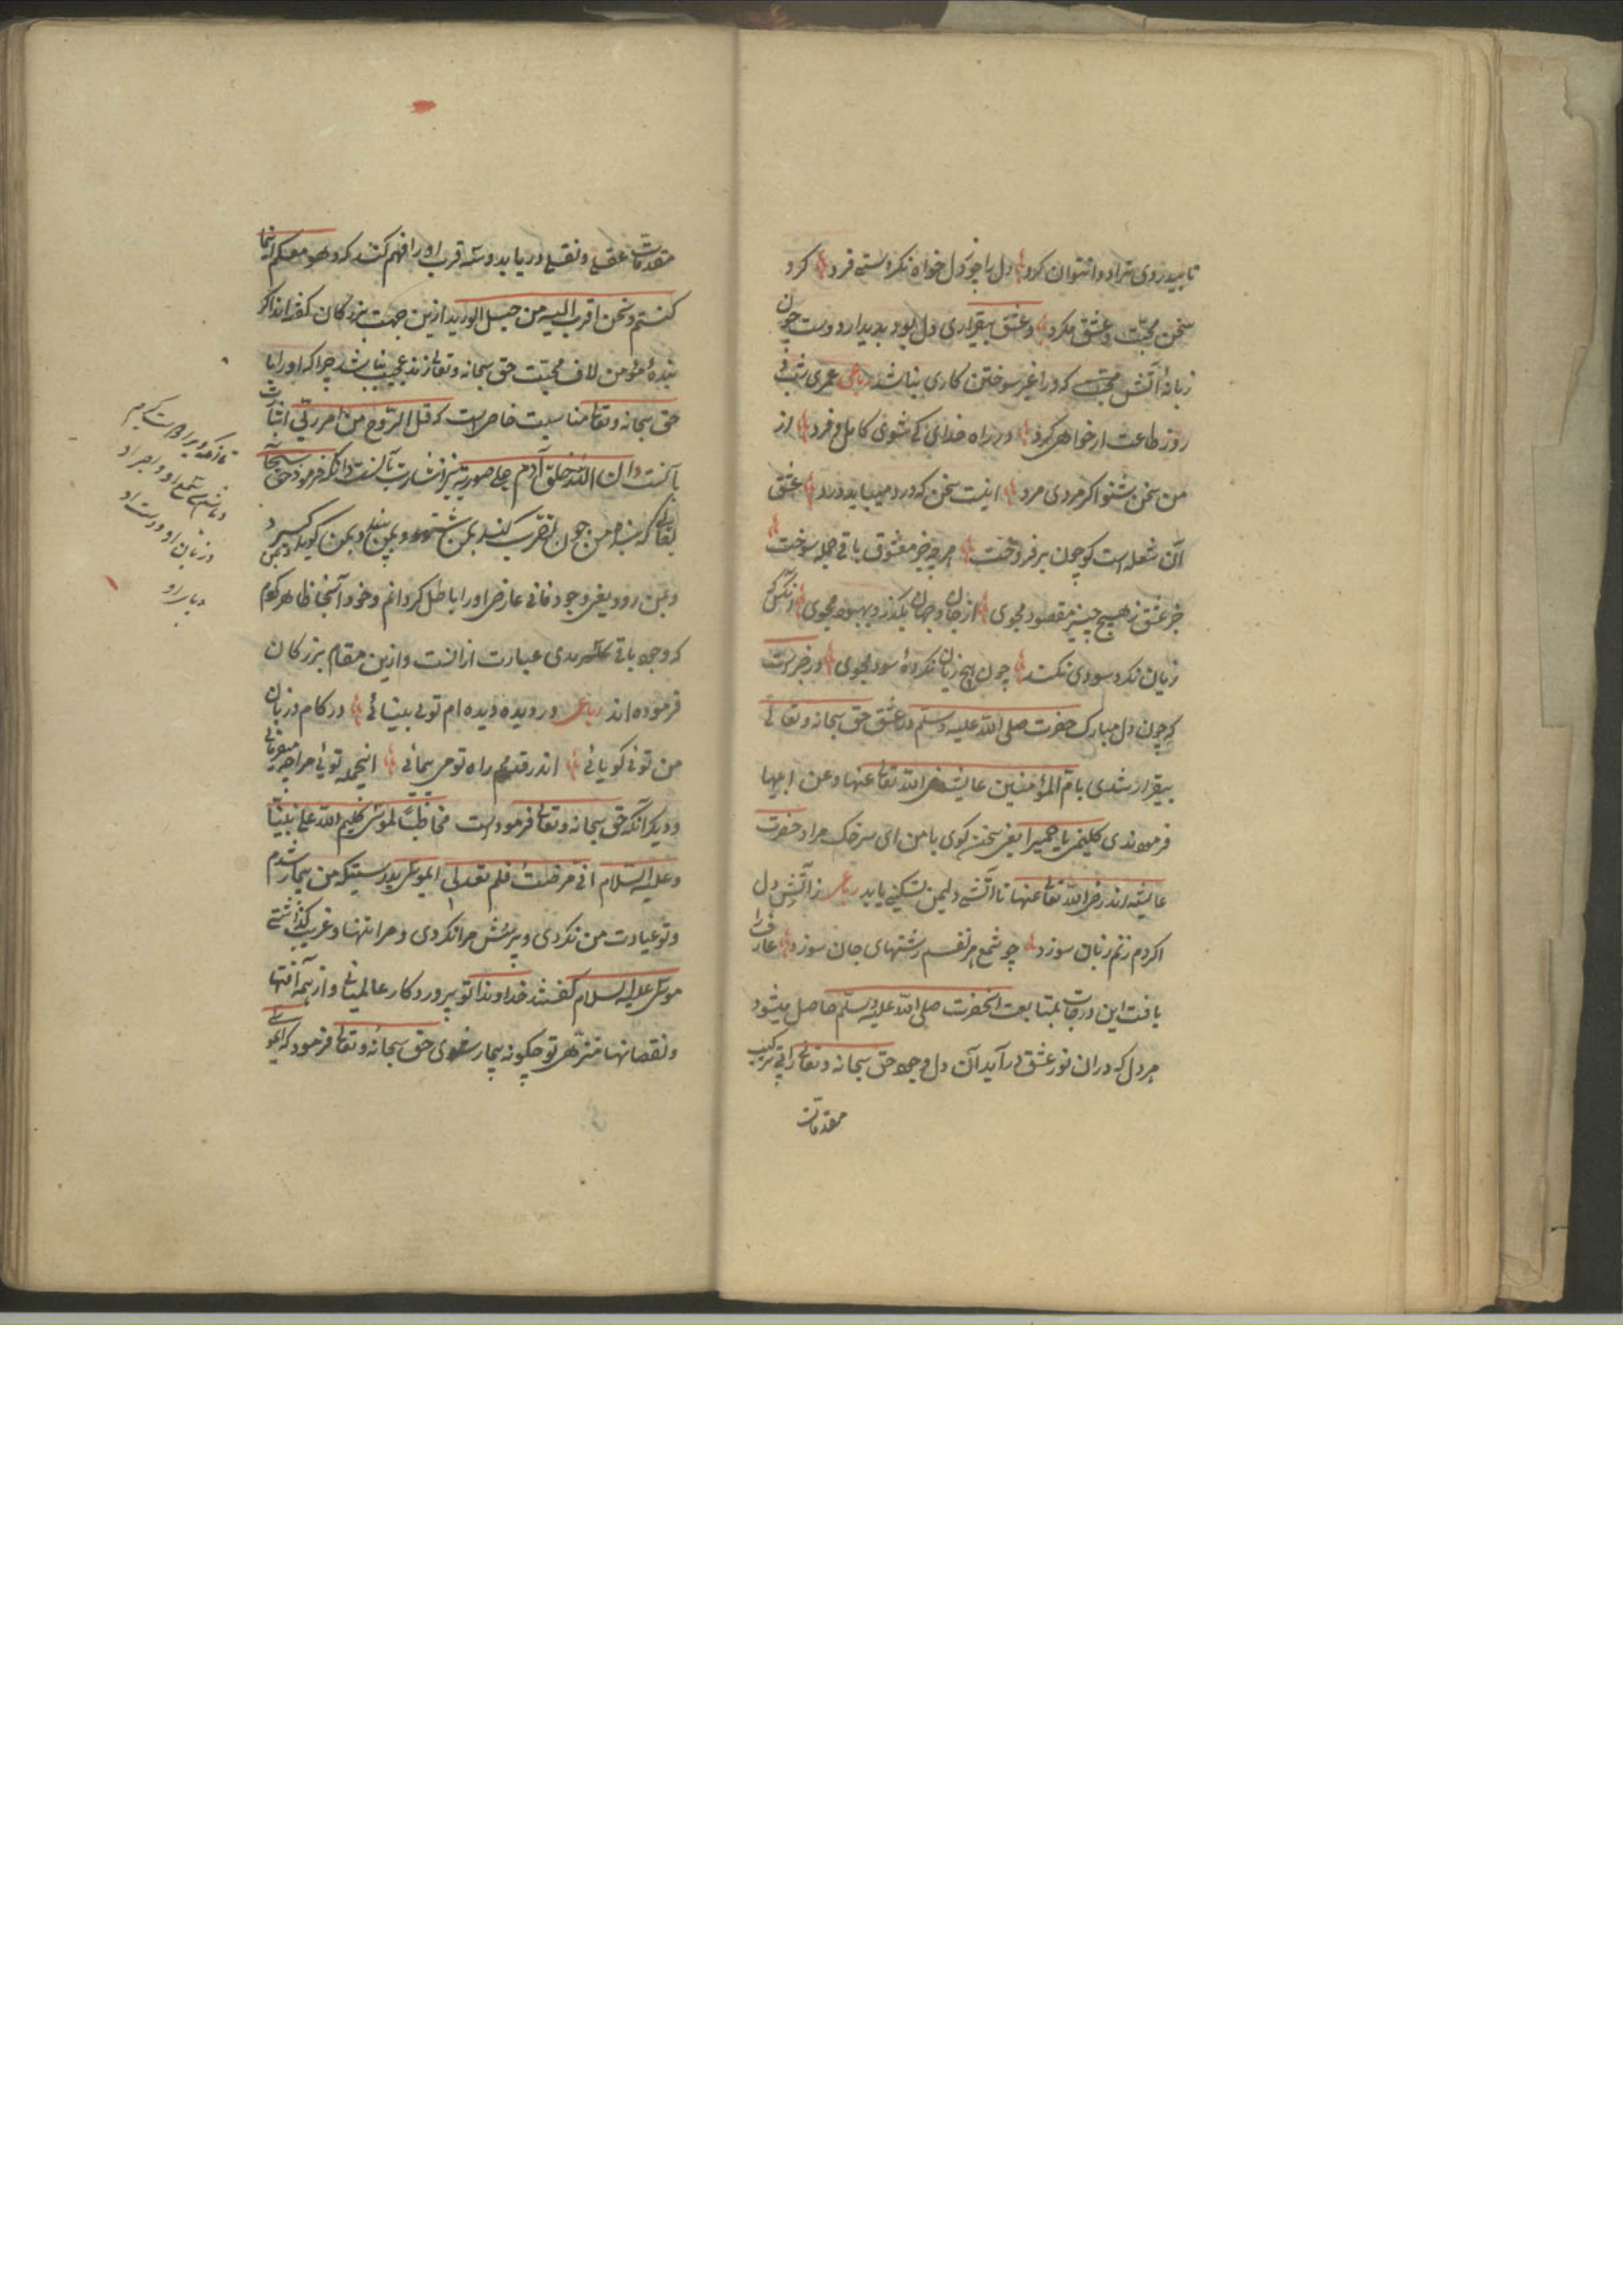 تا بیدردی ترا دوا نتوان کرد دل را چو دل خواه نکردستی فرد کرد
سخن محبت و عشق مکرد و عشق بیقراری دل بود بدیدار دوست چون
زبانهٔ آتش محبت که ورا غیر سوختن کاری نباشد رباعی عمری بشب و
روز طاعت ار خواهی کرد در راه خدای کی شوی کامل و فرد از
من سخن بشنو اکر مردی مرد اینست سخن که درد میباید درد عشق
آن شعله است کو چون برفروخت هر چه جز معشوق باقی جمله سوخت
جز عشق ز هیچ چیز مقصود مجوی از جان و جهان بکذر و بهبود مجوی آنکس که
زیان نکرد سودی نکند چون هیچ زیان نکردهٔ سود مجوی در خبرست
که چون دل مبارک حضرت صلی الله علیه وسلم در عشق حق سبحانه و تعالی
بیقرار شدی با ام المؤمنین عایشه رضی الله تعالی عنها و عن ابیها
فرمودندی کلمینی یا حمیرا یعنی سخن کوی با من ای سرخک مراد حضرت
عایشه اند رضی الله تعالی عنها تا آتش دلیمن تسکینی یابد رباعی ز آتش دل
اکر دم زنم زبان سوزد چو شمع هر نفسم رشتهای جان سوزد عارف را
یافت این درجات بمتابعت آنحضرت صلی الله علیه وسلم حاصل میشود
هر دل که دران نور عشق درآید آن دل وجه حق سبحانه و تعالی را بی ترکیب
مقدمات
مقدمات عقلی و نقلی دریابد و سر قرب او را فهم کند که و هو معکم اینما
کنتم و نحن اقرب الیه من حبل الورید ازین جهت بزرکان کفته اند اکر
بندهٔ مؤمن لاف محبت حق سبحانه و تعالی زند عجیب نباشد چرا که او را با
حق سبحانه و تعالی مناسبت خاص است که قل الروح من امر ربی اشارت
بآنست و ان الله خلق آدم علی صورته نیز اشارت بآنست و آنکه فرمود حق سبحانه
تعالی که بنده من چون تقرب کند بمن شنود و بمن بیند و بمن کوید و بمن کیرد
و بمن رود یعنی وجود فانی عارضی او را باطل کردانم و خود آنجا ظاهر کردم
که وجه باقی سرمدی عبارت ازانست و ازین مقام بزرکان
فرموده اند رباعی در دیده دیده ام تویی بینائی در کام و زبان
من توئی کویائی اندر قدمم راه تو می پیمائی اینجمله توئی مرا چه میفرمائی
و دیکر آنکه حق سبحانه و تعالی فرموده است مخاطباً لموسی کلیم الله علی نبینا
و علیه السلام انی مرضت فلم تعدنی ایموسی بدرستیکه من بیمار شدم
و تو عیادت من نکردی و پرسش مرا نکردی و مرا تنها و غریب کذاشتی
موسی علیه السلام کفتند خداوندا تو پرورد کار عالمیانی و از همه آفتها
و نقصانها منزهی تو چکونه بیمار شوی حق سبحانه و تعالی فرمود که ای مو